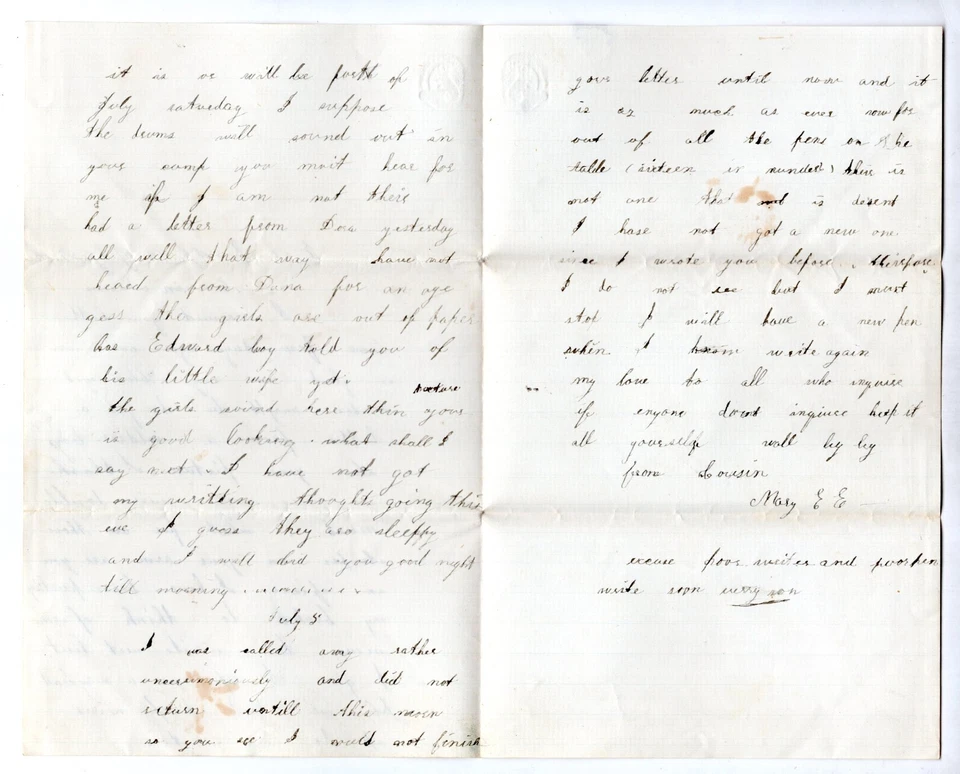 it is or will be forth of
July saturday I suppose
the drums will sound out in
your camp you must hear for
me if I am not there
had a letter from Dora yesterday
all well that way have not
heard from Dana for an age
gess the girls are out of paper
has Edward boy told you of
his little wife yet.
the girls sound here thin your
is good looking. what shall I
say next. I have not got
my writting thought going this
eve I guess they are sleeppy
and I will bid you good night
till morning.
July 5
I was called away rather
unceremoniously and did not
return untill this morn
as you see I could not finish
your letter until now and it
is as much as ever now for
out of all the pens on the
table (sixteen in number) there is
not one that is desent
I have not got a new one
since I wrote you before. therefore
I do not see but I must
stop I will have a new pen
when I write again
my love to all who inquire
if enyone doent inqiuce keep it
all yourself well by by
from Cousin
Mary E E
excuse poor writer and poor pen
write soon very son